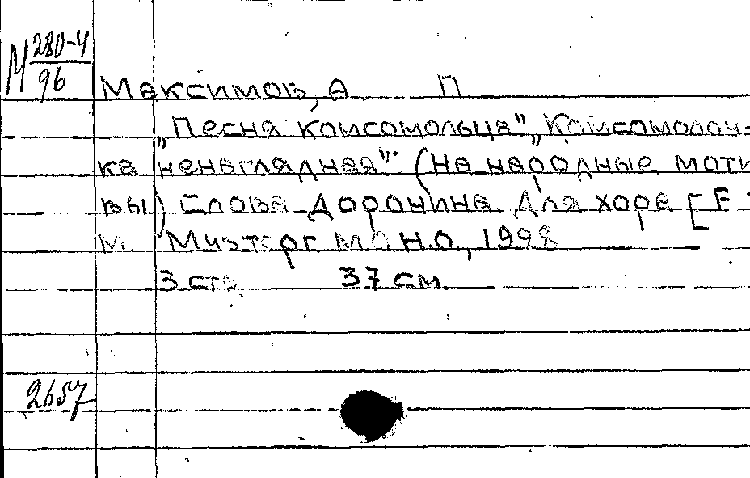 М 280-4
96
Максимов, А П
„Песня комсомольца", „Комсомолоч-
ка ненаглядная" (На народные моти
вы) Слова Доронина Для хора [F
М. Музторг МОНО, 1928
3 стр 37 см.
2657